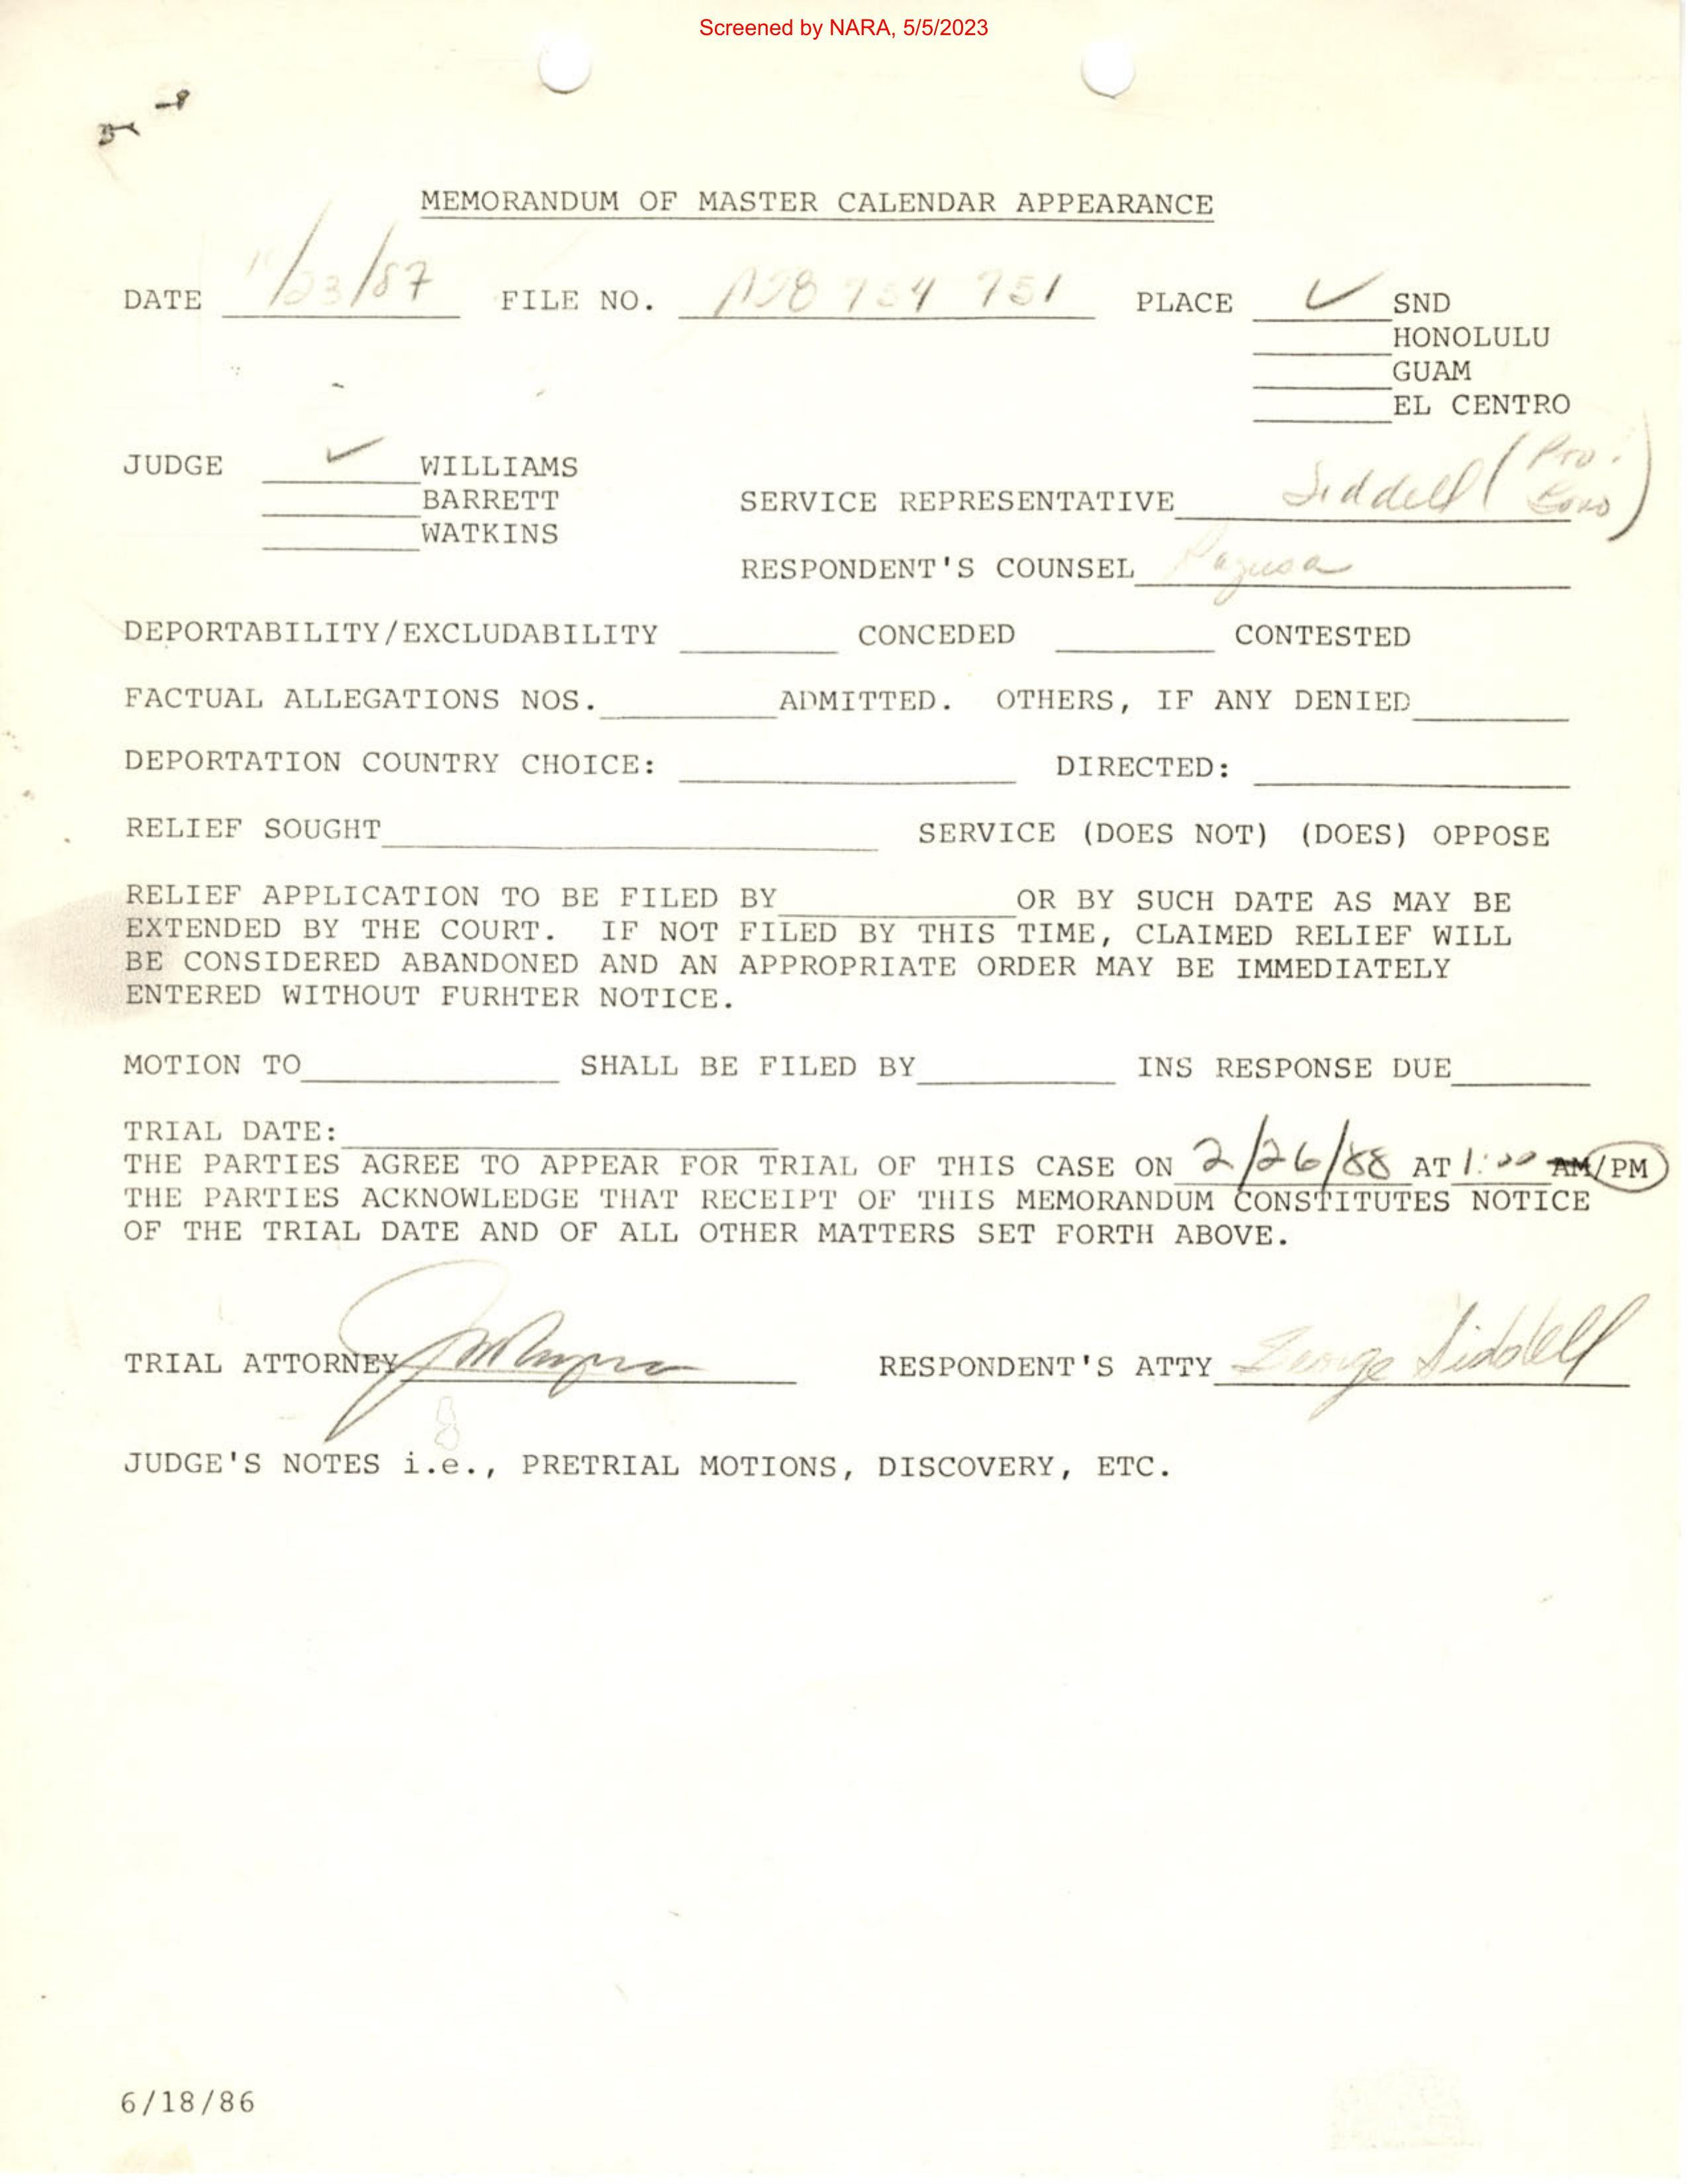 Screened by NARA, 5/5/2023
MEMORANDUM OF MASTER CALENDAR APPEARANCE
DATE 11/23/87 FILE NO. A28 PLACE ✓ SND
HONOLULU
GUAM
EL CENTRO
JUDGE ✓ WILLIAMS
BARRETT
WATKINS
SERVICE REPRESENTATIVE Siddell (Pro. Bono)
RESPONDENT'S COUNSEL
DEPORTABILITY/EXCLUDABILITY CONCEDED CONTESTED
FACTUAL ALLEGATIONS NOS. ADMITTED. OTHERS, IF ANY DENIED
DEPORTATION COUNTRY CHOICE: DIRECTED:
RELIEF SOUGHT SERVICE (DOES NOT) (DOES) OPPOSE
RELIEF APPLICATION TO BE FILED BY OR BY SUCH DATE AS MAY BE
EXTENDED BY THE COURT. IF NOT FILED BY THIS TIME, CLAIMED RELIEF WILL
BE CONSIDERED ABANDONED AND AN APPROPRIATE ORDER MAY BE IMMEDIATELY
ENTERED WITHOUT FURHTER NOTICE.
MOTION TO SHALL BE FILED BY INS RESPONSE DUE
TRIAL DATE:
THE PARTIES AGREE TO APPEAR FOR TRIAL OF THIS CASE ON 2/26/88 AT 1:00 AM/PM
THE PARTIES ACKNOWLEDGE THAT RECEIPT OF THIS MEMORANDUM CONSTITUTES NOTICE
OF THE TRIAL DATE AND OF ALL OTHER MATTERS SET FORTH ABOVE.
TRIAL ATTORNEY RESPONDENT'S ATTY George Siddell
JUDGE'S NOTES i.e., PRETRIAL MOTIONS, DISCOVERY, ETC.
6/18/86